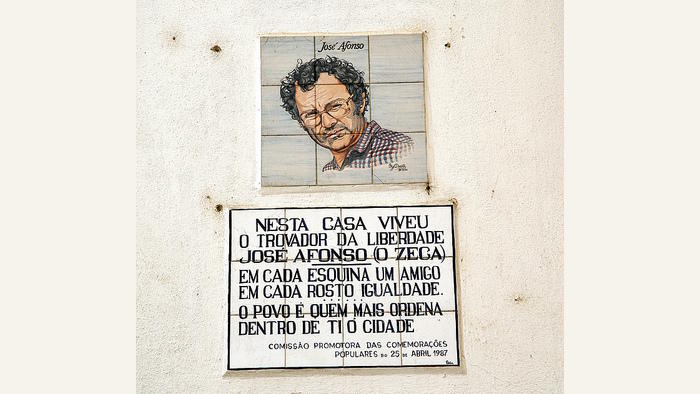 José Afonso
NESTA CASA VIVEU
O TROVADOR DA LIBERDADE
JOSÉ AFONSO (O ZECA)
EM CADA ESQUINA UM AMIGO
EM CADA ROSTO IGUALDADE.
.......
O POVO É QUEM MAIS ORDENA
DENTRO DE TI Ó CIDADE
COMISSÃO PROMOTORA DAS COMEMORAÇÕES
POPULARES DO 25 DE ABRIL 1987